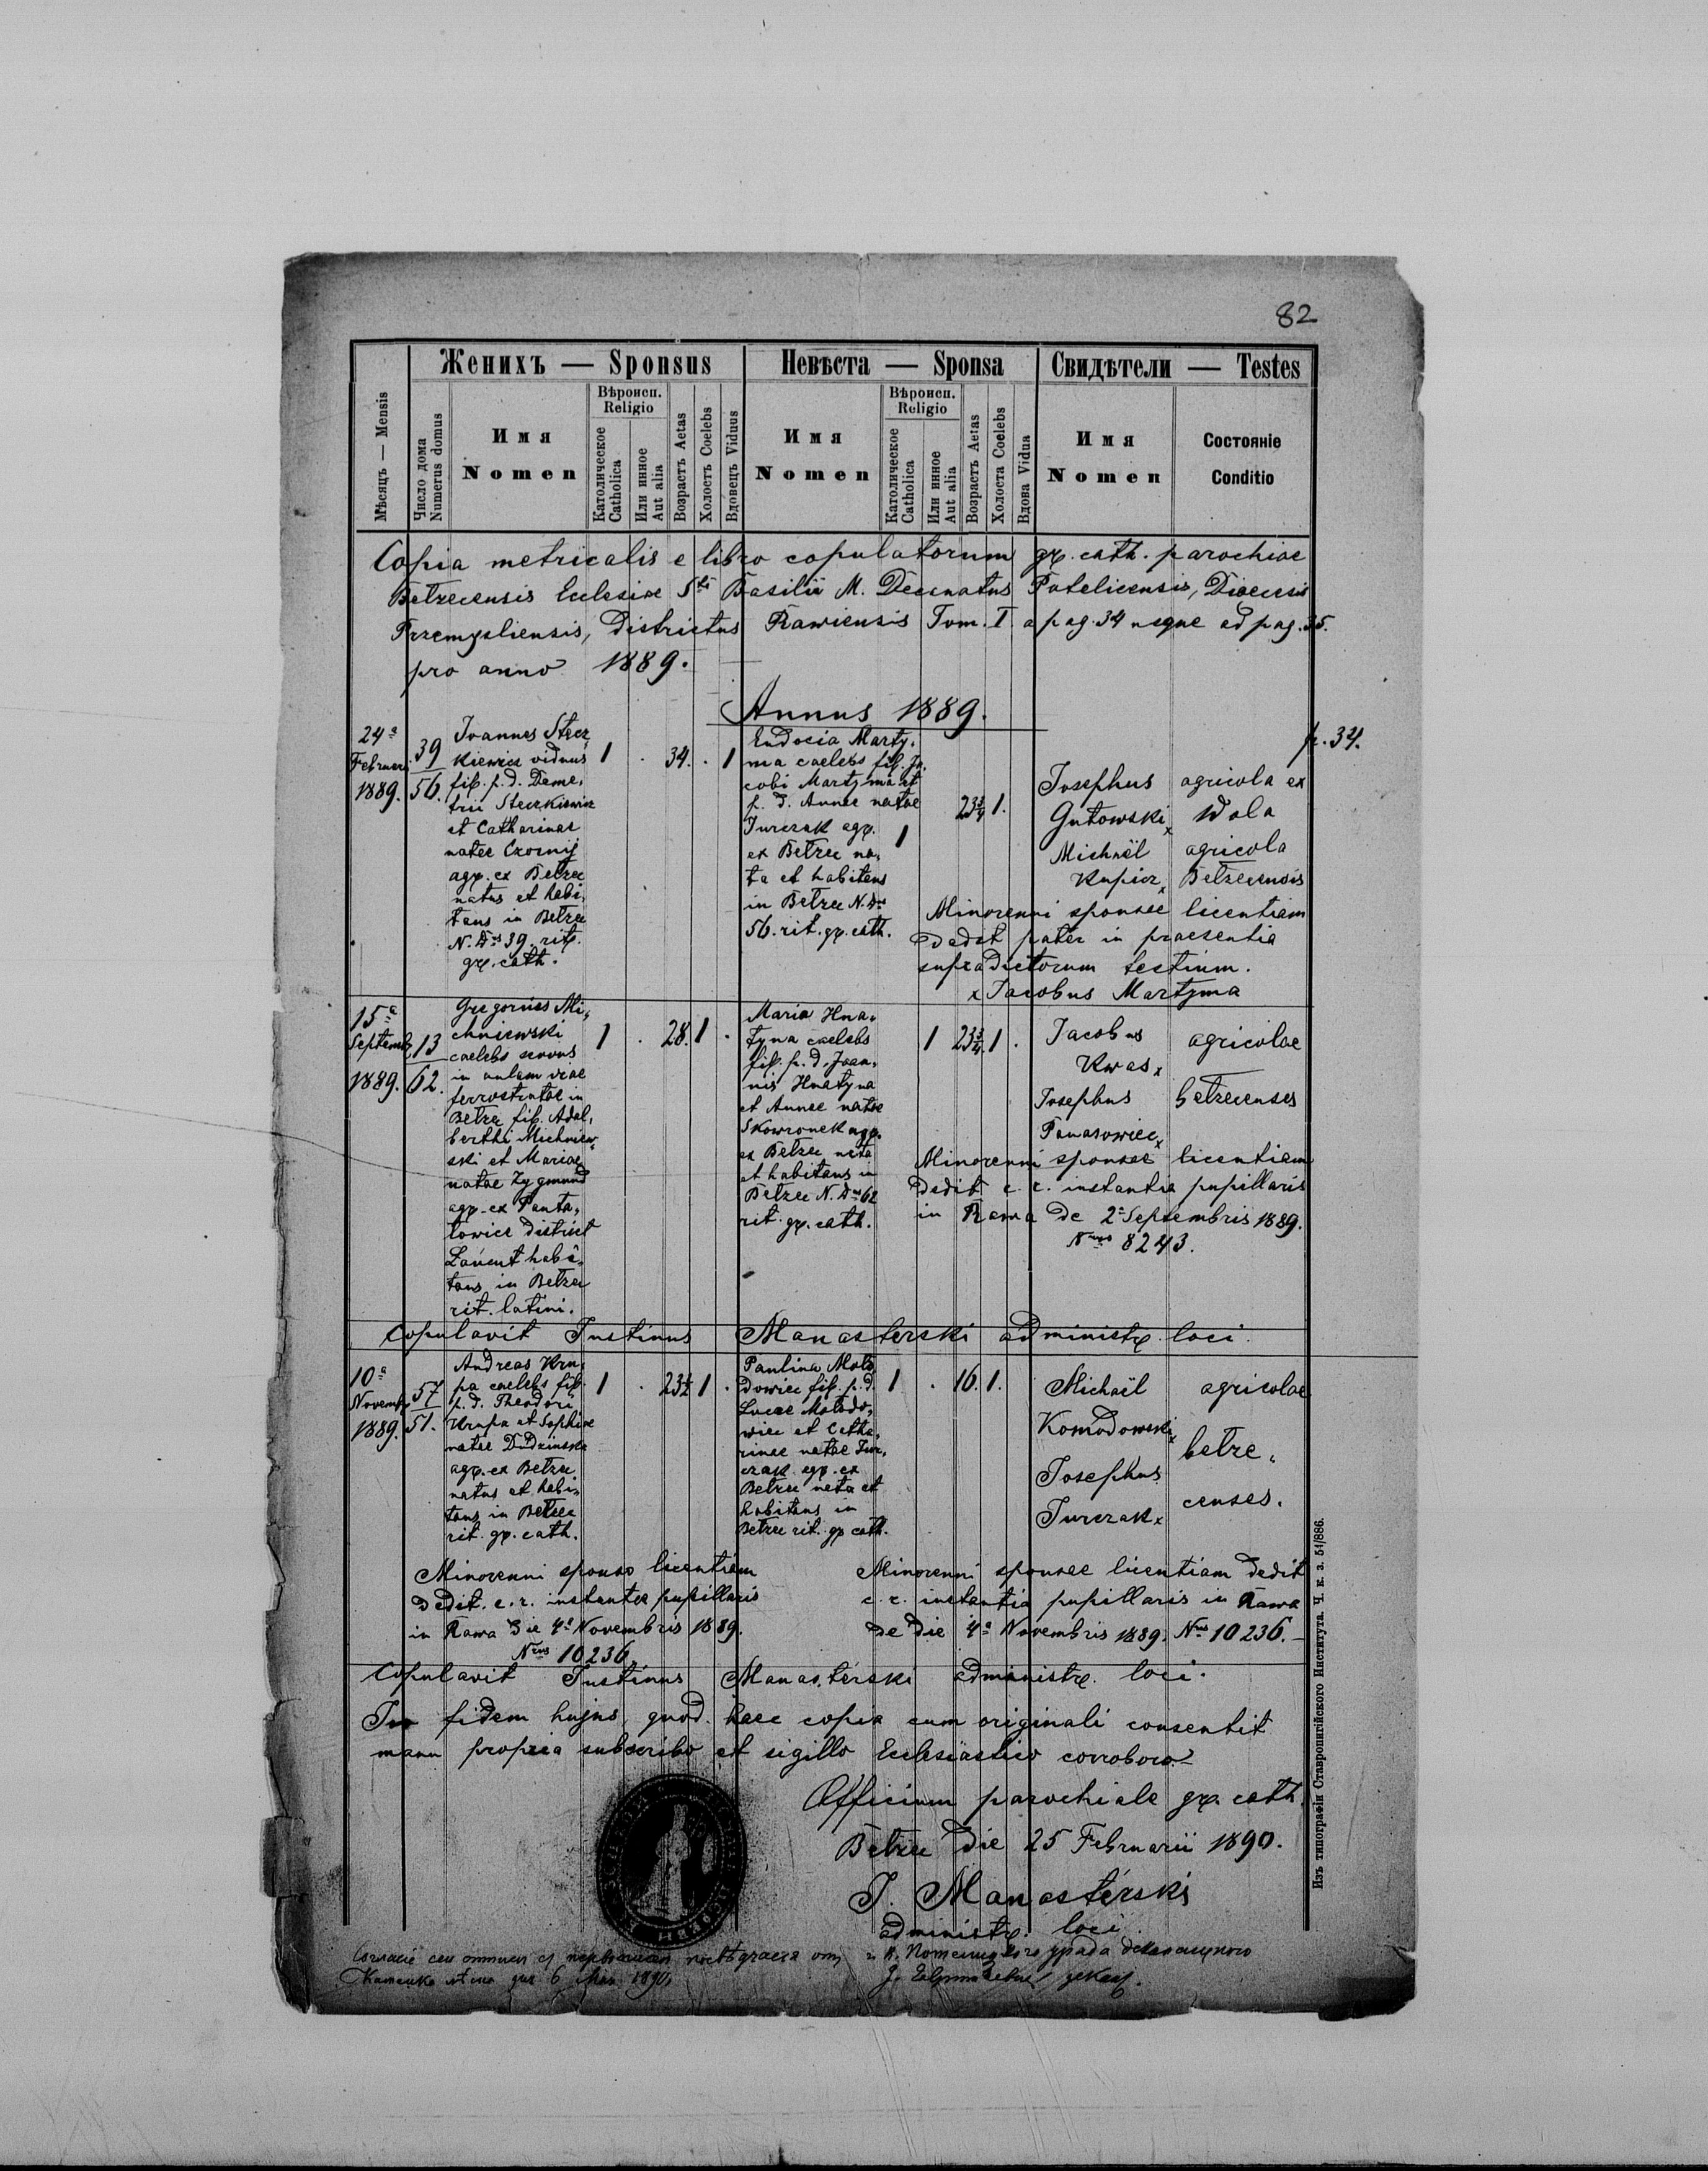 82
Женихъ — Sponsus
Невѣста — Sponsa
Свидѣтели — Testes
Мѣсяцъ — Mensis
Число дома
Numerus domus
Имя
Nomen
Вѣроисп.
Religio
Католическое
Catholica
Или инное
Aut alia
Возрастъ Aetas
Холостъ Coelebs
Вдовецъ Viduus
Имя
Nomen
Вѣроисп.
Religio
Католическое
Catholica
Или инное
Aut alia
Возрастъ Aetas
Холоста Coelebs
Вдова Vidua
Имя
Nomen
Состояніе
Conditio
Copia metricalis e libro copulatorum gr. cath. parochiae
Betzecensis Ecclesiae Sti Basilii M. Decanatus Potelicensis, Dioecesis
Przemysliensis, Districtus Rawiensis Tom. I a pag. 34 usque ad pag. 35.
pro anno 1889.
Annus 1889.
p. 34.
24a
Februar
1889.
39
56.
Ioannes Stecz
kiewicz viduus
fil. p. d. Deme,
trii Steczkiewicz
et Catharinae
natae Czornij
agr. ex Betzec
natus et habi,
tans in Betzec
N. Dus 39. rit.
gr. cath.
1 . 34. . 1
Eudocia Marty,
ma caelebs fil. Ja,
cobi Martyma et
p. d. Annae natae
Jurczak agr.
ex Betzec na,
ta et habitans
in Betzec N. Dus
56. rit. gr. cath.
1
23 3/4 1.
Josephus agricola ex
Gutowski x Wola
Michaël agricola
Kupicz x Betzecensis
Minorenni sponsae licentiam
dedit pater in praesentia
supradictorum testium.
x Jacobus Martyma
15a
Septemb.
1889.
13
62.
Gregorius Mi,
chniewski
caelebs servus
in aulam viae
ferrostratae in
Betzec fil. Adal,
berthi Michniew,
ski et Mariae
natae Zygmund
agr. ex Panta,
lowice district
Łańcut habi,
tans in Betzec
rit. latini.
1 . 28. 1 .
Maria Hna,
tyna caelebs
fil. p. d. Joan,
nis Hnatyna
et Annae natae
Skowronek agr.
ex Betzec nata
et habitans in
Betzec N. Dus 62
rit. gr. cath.
1 23 3/4. 1 .
Jacobus agricolae
Kwas x
Josephus betzecenses
Panasowiec x
Minorenni sponsae licentiam
dedit c. r. instantia pupillaris
in Rawa de 2a Septembris 1889.
Nrus 8243.
Copulavit Justinus Manasterski administr. loci.
10a
Novemb.
1889.
57
51.
Andreas Kru,
pa caelebs fil.
p. d. Theodori
Krupa et Sophiae
natae Dudzinska
agr. ex Betzec
natus et habi,
tans in Betzec
rit. gr. cath.
1 . 23 1/2 1 .
Paulina Moło,
dowiec fil. p. d.
Lucae Mołodo,
wiec et Catha,
rinae natae Jur,
czak agr. ex
Betzec nata et
habitans in
Betzec rit. gr. cath.
1 . 16. 1.
Michaël agricolae
Komadowski x
betze,
Josephus
censes.
Jurczak x
Minorenni sponso licentiam
dedit c. r. instantia pupillaris
in Rawa die 4a Novembris 1889.
Nrus 10236.
Minorenni sponsae licentiam dedit
c. r. instantia pupillaris in Rawa
de die 4a Novembris 1889. Nrus 10236.
Copulavit Justinus Manasterski administr. loci.
In fidem hujus, quod haec copia cum originali consentit
manu propria subscribo et sigillo Ecclesiastico corroboro.
Officium parochiale gr. cath.
Betzec die 25 Februarii 1890.
J. Manasterski
administr. loci
Изъ типографіи Ставропигійского Института. Ч. к. з. 51/886.